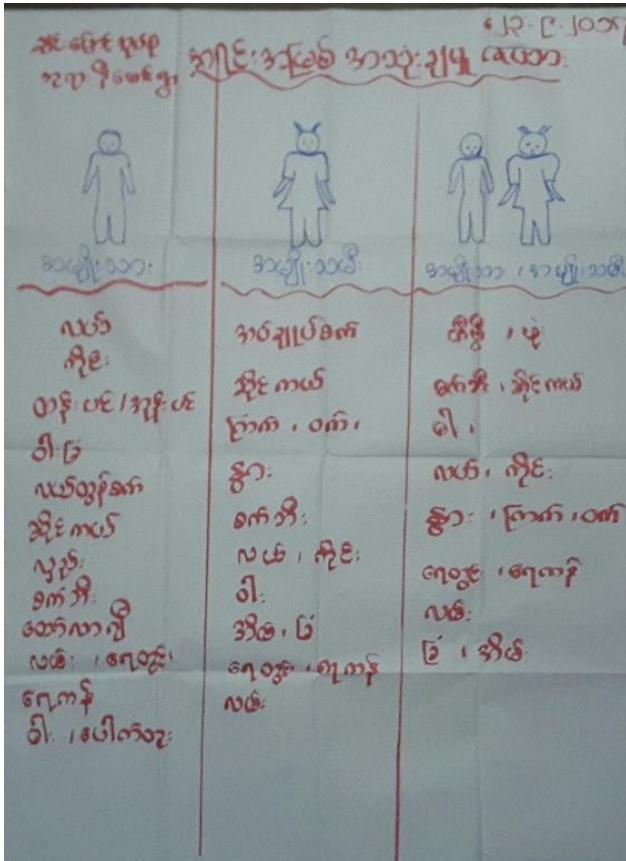 ၂၃.၉.၂၀၁၇
အရင်းအမြစ် အသုံးချမှု ဇယား
အမျိုးသား
အမျိုးသမီး
အမျိုးသား ၊ အမျိုးသမီး
လယ်
ကိုင်း
ထန်းပင် ၊ အုန်းပင်
ဝါးခြံ
လယ်ထွန်စက်
ဆိုင်ကယ်
လှည်း
စက်ဘီး
ထော်လာဂျီ
လမ်း ၊ ရေတွင်း ၊
ရေကန်
ဝါး ၊ ပေါက်တူး
အပ်ချုပ်စက်
ဆိုင်ကယ်
ကြက် ၊ ဝက် ၊
နွား
စက်ဘီး
လယ် ၊ ကိုင်း
ဝါး
အိမ် ၊ ခြံ
ရေတွင်း ၊ ရေကန်
လမ်း
တီဗွီ ၊ ဖုန်း
စက်ဘီး ၊ ဆိုင်ကယ်
ဝါး ၊
လယ် ၊ ကိုင်း
နွား ၊ ကြက် ၊ ဝက်
ရေတွင်း ၊ ရေကန်
လမ်း
ခြံ ၊ အိမ်